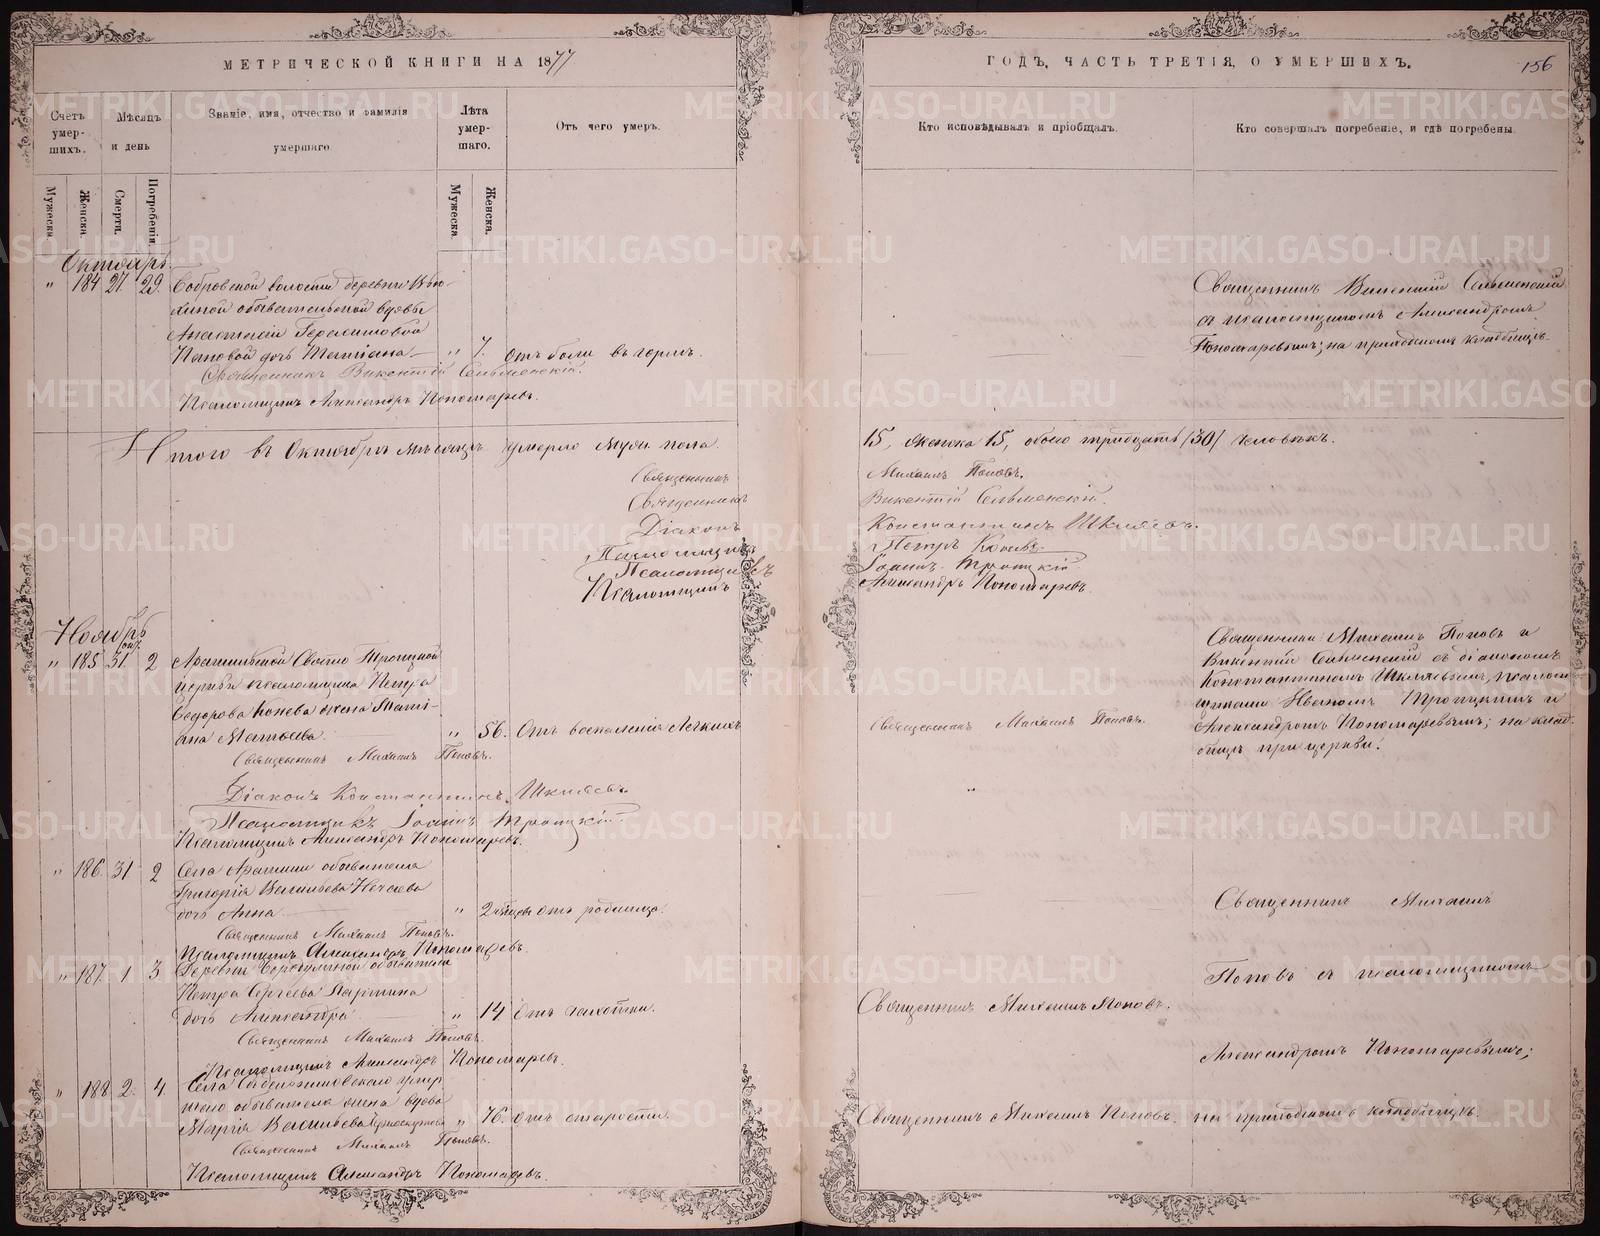 МЕТРИЧЕСКОЙ КНИГИ НА 1877
ГОДЪ, ЧАСТЬ ТРЕТІЯ, О УМЕРШИХЪ.
156
Счетъ умер-
шихъ.
Мѣсяцъ
и день
Званіе, имя, отчество и фамилія
умершаго.
Лѣта
умер-
шаго.
Отъ чего умеръ.
Кто исповѣдывалъ и пріобщалъ.
Кто совершалъ погребеніе, и гдѣ погребены.
Мужеска.
Женска.
Смерти.
Погребенія.
Мужеска.
Женска.
Октябрь
" 184 27. 29. Бобровской волости деревни
обывательской вдовы
Анастасіи Герасимовой
Поповой дочь Татіана " 7. отъ боли въ горлѣ.
Священникъ Викентій Сельменскій.
Псаломщикъ Александръ Пономаревъ.
Священникъ Викентій Сельменскій
съ псаломщикомъ Александромъ
Пономаревымъ; на приходскомъ кладбищѣ.
Итого въ Октябрѣ мѣсяцѣ умерло муж. пола
15, женска 15, обоего тридцать /30/ человѣкъ.
Священникъ Михаилъ Поповъ.
Священникъ Викентій Сельменскій.
Діаконъ Константинъ Шкляевъ.
Псаломщикъ Петръ Коневъ
Псаломщикъ Іоаннъ Троицкій
Псаломщикъ Александръ Пономаревъ.
Ноябрь
" 185 31 2 Арамильской Свято Троицкой
церкви псаломщика Петра
Федорова Конева жена Тати-
ана Матѳеева. " 56. Отъ воспаленія легкихъ
Священникъ Михаилъ Поповъ.
Діаконъ Константинъ Шкляевъ.
Псаломщикъ Іоаннъ Троицкій
Псаломщикъ Александръ Пономаревъ.
Священникъ Михаилъ Поповъ.
Священники: Михаилъ Поповъ и
Викентій Сельменскій съ діакономъ
Константиномъ Шкляевымъ, псалом-
щиками Иваномъ Троицкимъ и
Александромъ Пономаревымъ; на клад-
бищѣ при церкви.
" 186. 31 2 Села Арамили обывателя
Григорія Васильева Нечаева
дочь Анна " 2 мѣсяц. отъ родимца.
Священникъ Михаилъ Поповъ.
Псаломщикъ Александръ Пономаревъ.
" 187. 1 3 Деревни обывателя
Петра Сергеева
дочь Александра " 14 Отъ чахотки.
Священникъ Михаилъ Поповъ.
Псаломщикъ Александръ Пономаревъ.
Священникъ Михаилъ Поповъ.
" 188 2. 4. Села умер-
шаго обывателя вдова
Марія Васильева " 76. Отъ старости.
Священникъ Михаилъ Поповъ.
Псаломщикъ Александръ Пономаревъ.
Священникъ Михаилъ Поповъ.
Священникъ Михаилъ
Поповъ съ псаломщикомъ
Александромъ Пономаревымъ;
на приходскомъ кладбищѣ.
METRIKI.GASO-URAL.RU